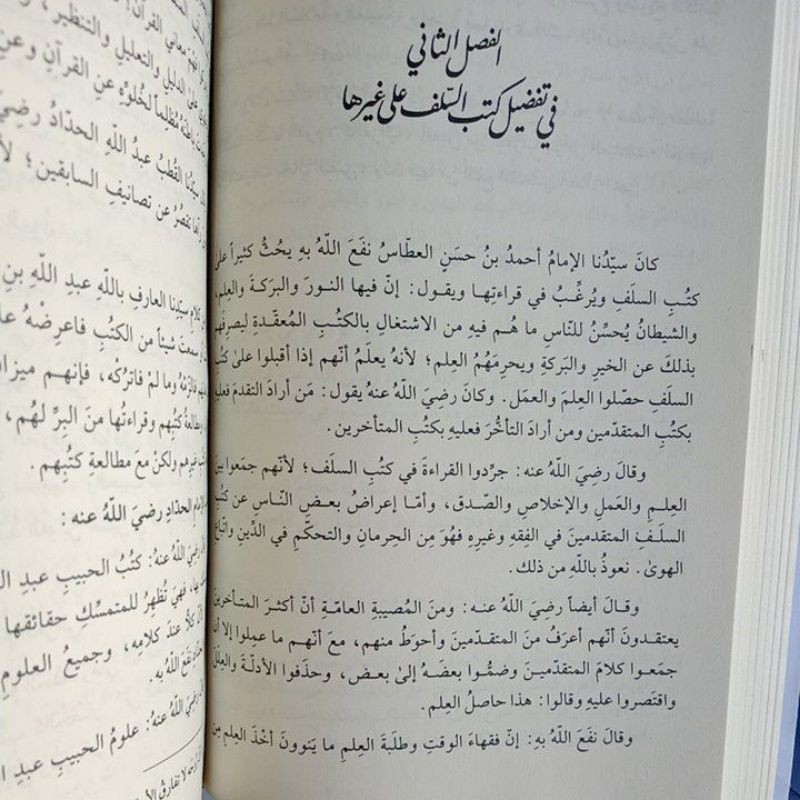 الفصل الثاني
في تفضيل كتب السّلف على غيرها
كانَ سيّدُنا الإمامُ أحمدُ بنُ حسَنٍ العطّاسُ نفَعَ اللّهُ بهِ يحُثُّ كثيراً على
كتُبِ السلَفِ ويُرغِّبُ في قراءتِها ويقول: إنّ فيها النورَ والبرَكةَ والعِلم،
والشيطانُ يُحسِّنُ للنّاسِ ما هُم فيهِ من الاشتغالِ بالكتُبِ المُعقّدةِ ليصرِفَهم
بذلكَ عن الخيرِ والبركةِ ويحرِمَهُمُ العِلم؛ لأنهُ يعلَمُ أنّهم إذا أقبلوا على كتُبِ
السلَفِ حصّلوا العِلمَ والعمَل. وكانَ رضيَ اللّهُ عنهُ يقول: مَن أرادَ التقدمَ فعليهِ
بكتُبِ المتقدّمين ومن أرادَ التأخُّرَ فعليهِ بكتُبِ المتأخرين.
وقالَ رضيَ اللّهُ عنه: جرِّدوا القراءةَ في كتُبِ السلَف؛ لأنّهم جمَعوا بينَ
العِلمِ والعمَلِ والإخلاصِ والصّدق، وأمّا إعراضُ بعضِ النّاسِ عن كتُبِ
السلَفِ المتقدمينَ في الفِقهِ وغيرِهِ فهُوَ مِن الحِرمانِ والتحكّمِ في الدِّينِ واتّباعِ
الهوىٰ. نعوذُ باللّهِ من ذلك.
وقالَ أيضاً رضيَ اللّهُ عنه: ومنَ المُصيبةِ العامّةِ أنّ أكثرَ المتأخرينَ
يعتقدونَ أنّهم أعرَفُ منَ المتقدّمينَ وأحوَطُ منهم، معَ أنّهم ما عمِلوا إلا أن
جمَعوا كلامَ المتقدّمينَ وضمُّوا بعضَهُ إلىٰ بعض، وحذَفوا الأدلّةَ والعِلَلَ
واقتصَروا عليهِ وقالوا: هذا حاصِلُ العِلم.
وقالَ نفَعَ اللّهُ بهِ: إنّ فقهاءَ الوقتِ وطلَبةَ العِلمِ ما يَنوونَ أخْذَ العِلمِ مِن
معاني القرآن
على الدليلِ والتعليلِ والتنظير،
باطنُهُ مُظلِماً لخُلوِّهِ عنِ القرآنِ وعنِ
سيّدُنا القُطبُ عبدُ اللّهِ الحدّادُ رضيَ
تقصُرُ عن تصانيفِ السابقين؛
كلامِ سيّدِنا العارفِ باللّهِ عبدِ اللّهِ بنِ
سمعتَ شيئاً من الكتُبِ فاعرِضْهُ
وما لمْ فاترُكْه، فإنهم
كتُبِهم وقراءتُها منَ البِرِّ لهُم،
ولكنْ معَ مطالعةِ كتُبِهم.
الحدّادِ رضيَ اللّهُ عنه:
رضيَ اللّهُ عنه: كتُبُ الحبيبِ عبدِ
فهيَ تُظهِرُ للمتمسِّكِ حقائقَها
عندَ كلامِه، وجميعُ العلومِ
نفَعَ اللّهُ به.
اللّهُ عنه: علومُ الحبيبِ عبدِ